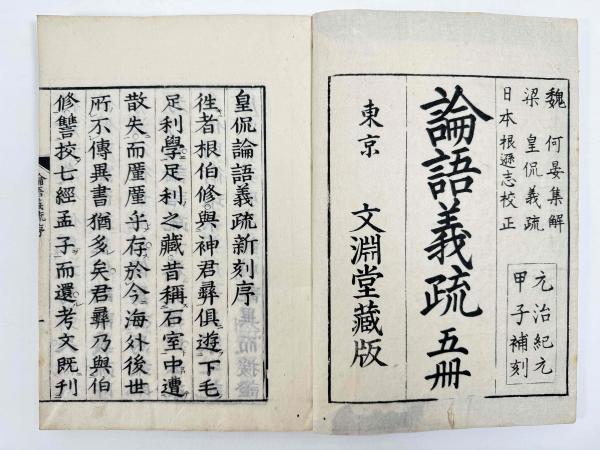 魏 何晏集解
梁 皇侃義疏
日本 根遜志校正
元治紀元
甲子補刻
論語義疏 五冊
東京 文淵堂藏版
皇侃論語義疏新刻序
徃者根伯修與神君彜俱遊下毛
足利學足利之藏昔稱石室中遭
散失而厪厪乎存於今海外後世
所不傳異書猶多矣君彜乃與伯
修讐挍七經孟子而還考文既刊